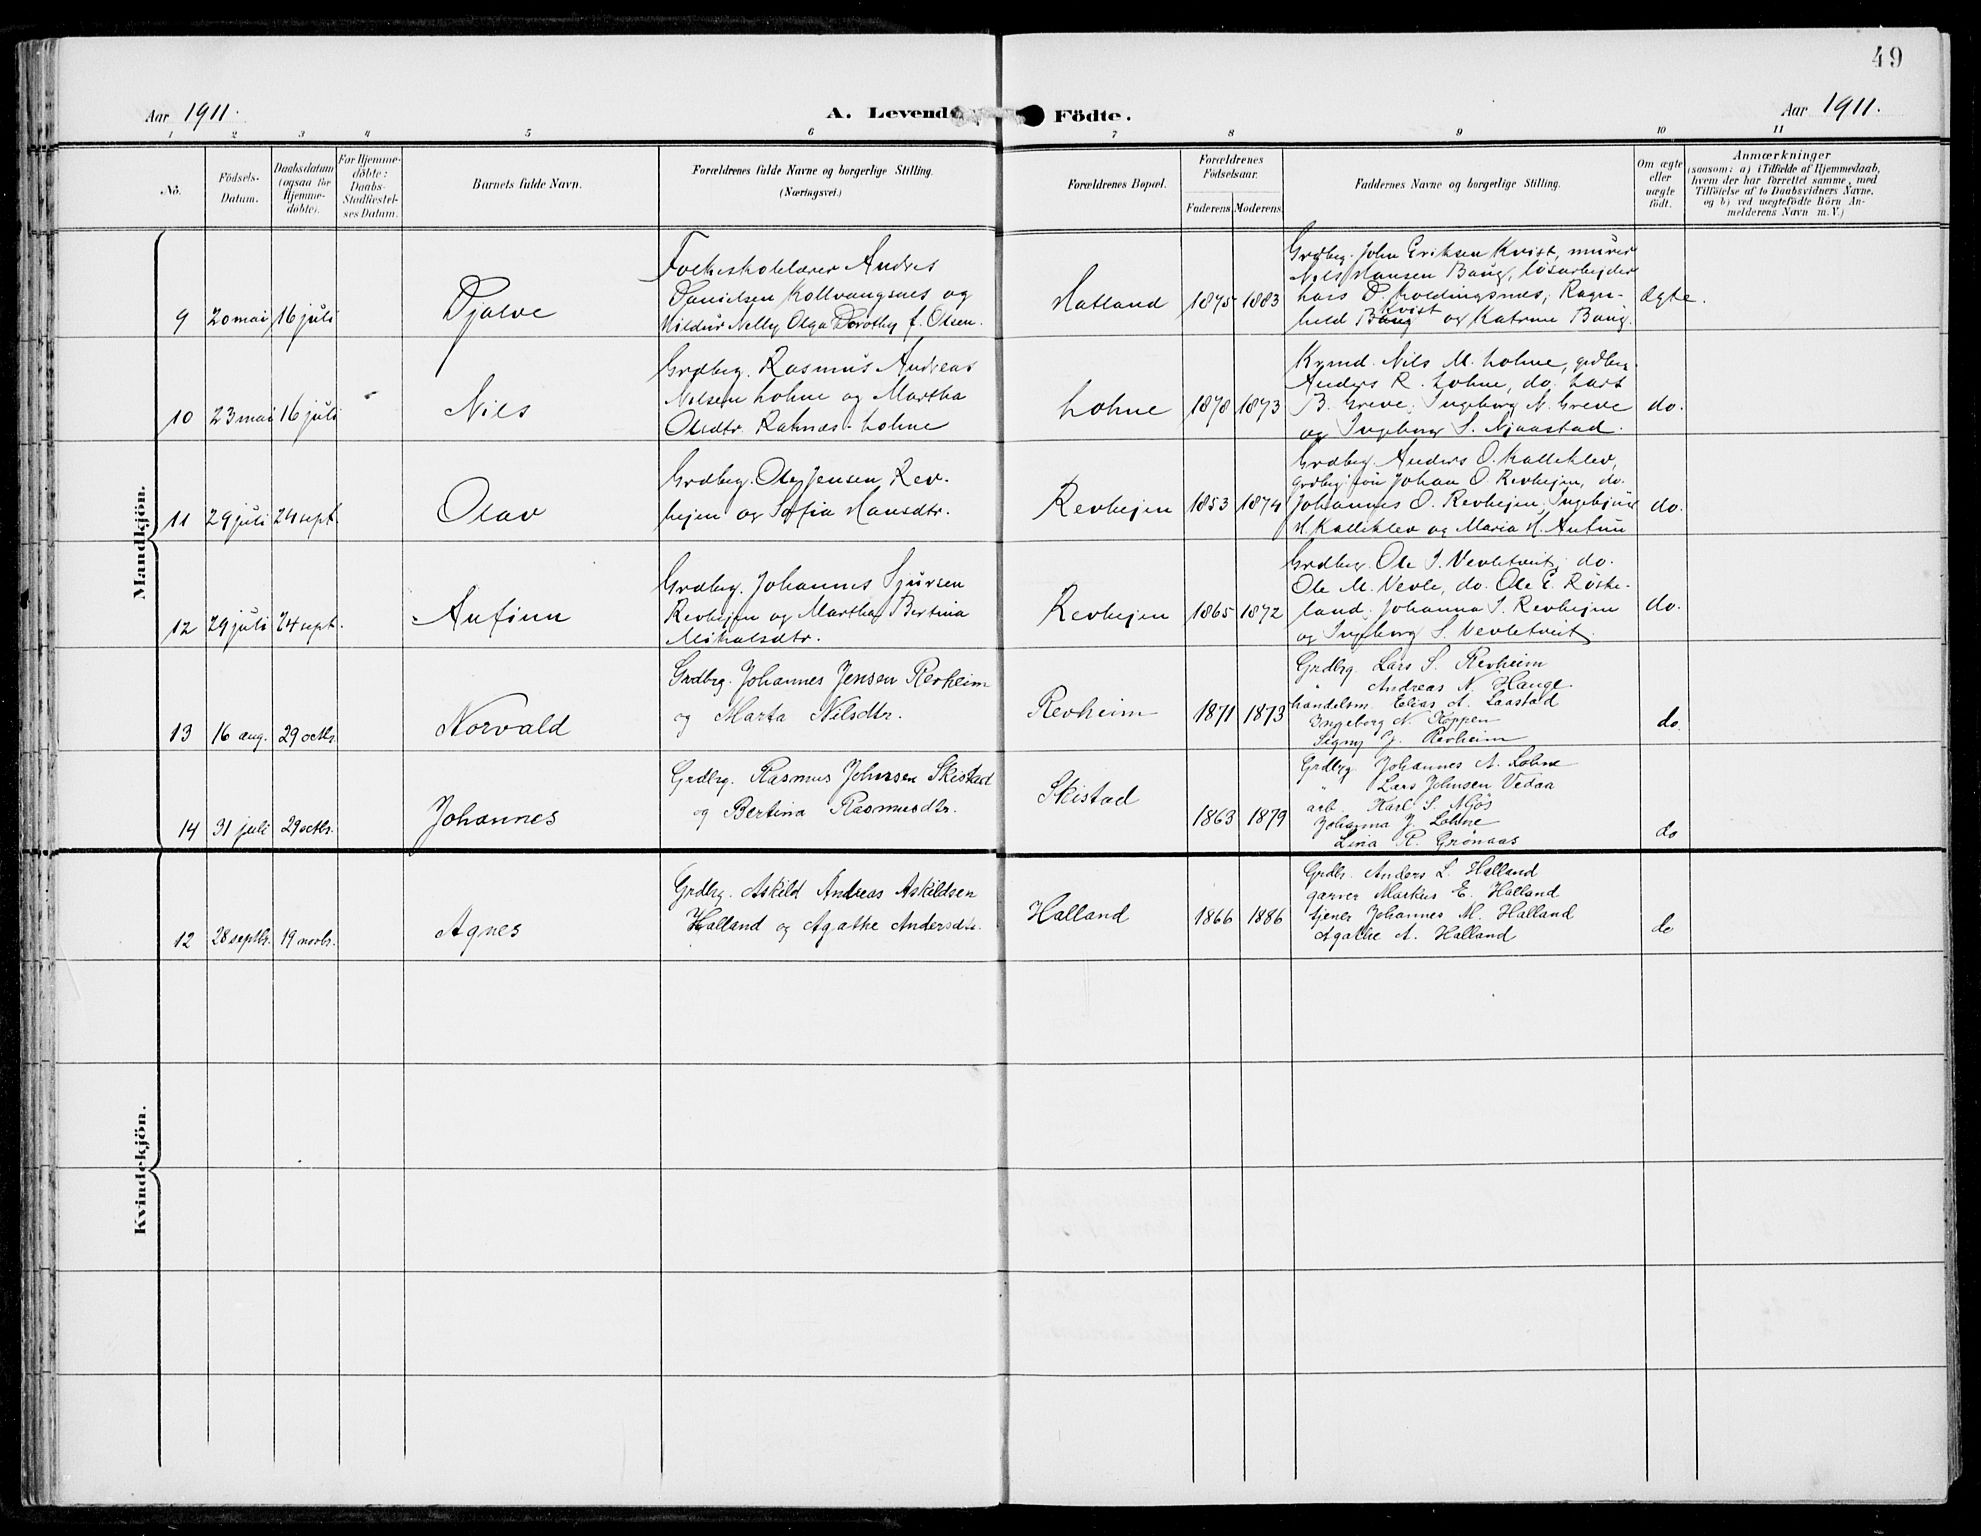 49
Aar 1911.
A. Levende Födte.
Aar 1911.
1 2 3 4 5 6 7 8 9 10 11
No.
Födsels-
Datum.
Daabsdatum
(ogsaa for
Hjemme-
döbte).
For Hjemme-
döbte:
Daabs-
Stadfæstel-
ses Datum.
Barnets fulde Navn.
Forældrenes fulde Navne og borgerlige Stilling.
(Næringsvei.)
Forældrenes Bopæl.
Forældrenes
Födselsaar.
Faderens Moderens.
Faddernes Navne og borgerlige Stilling.
Om ægte
eller
uægte
födt.
Anmærkninger
(saasom: a) i Tilfælde af Hjemmedaab,
hvem der har forrettet samme, med
Tilföielse af to Daabsvidners Navne,
og b) ved uægtefödte Börn An-
melderens Navn m. V.)
Mandkjön.
9 20 mai 16 juli
Tjalve
Folkeskolelærer Andres
Danielsen Kollvangsnes og
Hildur Nelly Olga Dorothy f. Olsen.
Hatland 1875 1883
Grdbrg. John Eriksen Kvist, murer
Nils Hansen Baug, løsarbejder
Lars D. Koldingsnes, Ragn-
Kvist
hild Baug og Katrine Baug.
Ægte.
10 23 mai 16 juli
Nils
Grdbrg. Rasmus Andreas
Nilsen Lohne og Martha
Olsdtr. Røhnes-Lohne
Lohne 1878 1873
Kymd. Nils M. Lohne, grdbrg.
Anders R. Lohne, do. Lars
B. Greve, Ingeborg N. Greve
og Ingeborg S. Njaastad.
do.
11 29 juli 24 sept.
Olav
Grdbrg. Ole Jensen Rev-
hejen og Sofia Hansdtr.
Revhejen 1853 1874
Grdbrg. Anders O. Kalleklev,
Johan O. Revhejen, do.
Johannes O. Revhejen, Ingebjør
H. Kalleklev og Maria H.
do.
12 29 juli 24 sept.
Anfinn
Grdbrg. Johannes Sjursen
Revhejen og Martha Bertina
Mikalsdtr.
Revhejen 1865 1872
Grdbrg. Ole I. Vevletveit, do.
Ole M. Vevle, do. Ole E. Røste-
land, Johanna S. Revhejen
og Ingeborg S. Vevletveit.
do.
13 16 aug. 29 octbr.
Norvald
Grdbrg. Johannes Jensen Revheim
og Marta Nilsdtr.
Revheim 1871 1873
Grdbrg. Lars S. Revheim
" Andreas N. Hauge
handelsm. Elias A. Laastad
Ingeborg N. Koppen
Signy J. Revheim
do
14 31 juli 29 octbr.
Johannes
Grdbrg. Rasmus Johnsen Skistad
og Bertina Rasmusdtr.
Skistad 1863 1879
Grdbrg. Johannes A. Lohne
" Lars Johnsen Vedaa
arb. Karl S. Mjös
Johanna J. Lohne
Lina R. Grønaas
do
Kvindekjön.
12 28 septbr. 19 novbr.
Agnes
Grdbrg. Askild Andreas Askildsen
Halland og Agathe Andersdtr.
Halland 1866 1886
Grdbr. Anders L. Halland
garver Markus E. Halland
tjener Johannes M. Halland
Agathe A. Halland
do